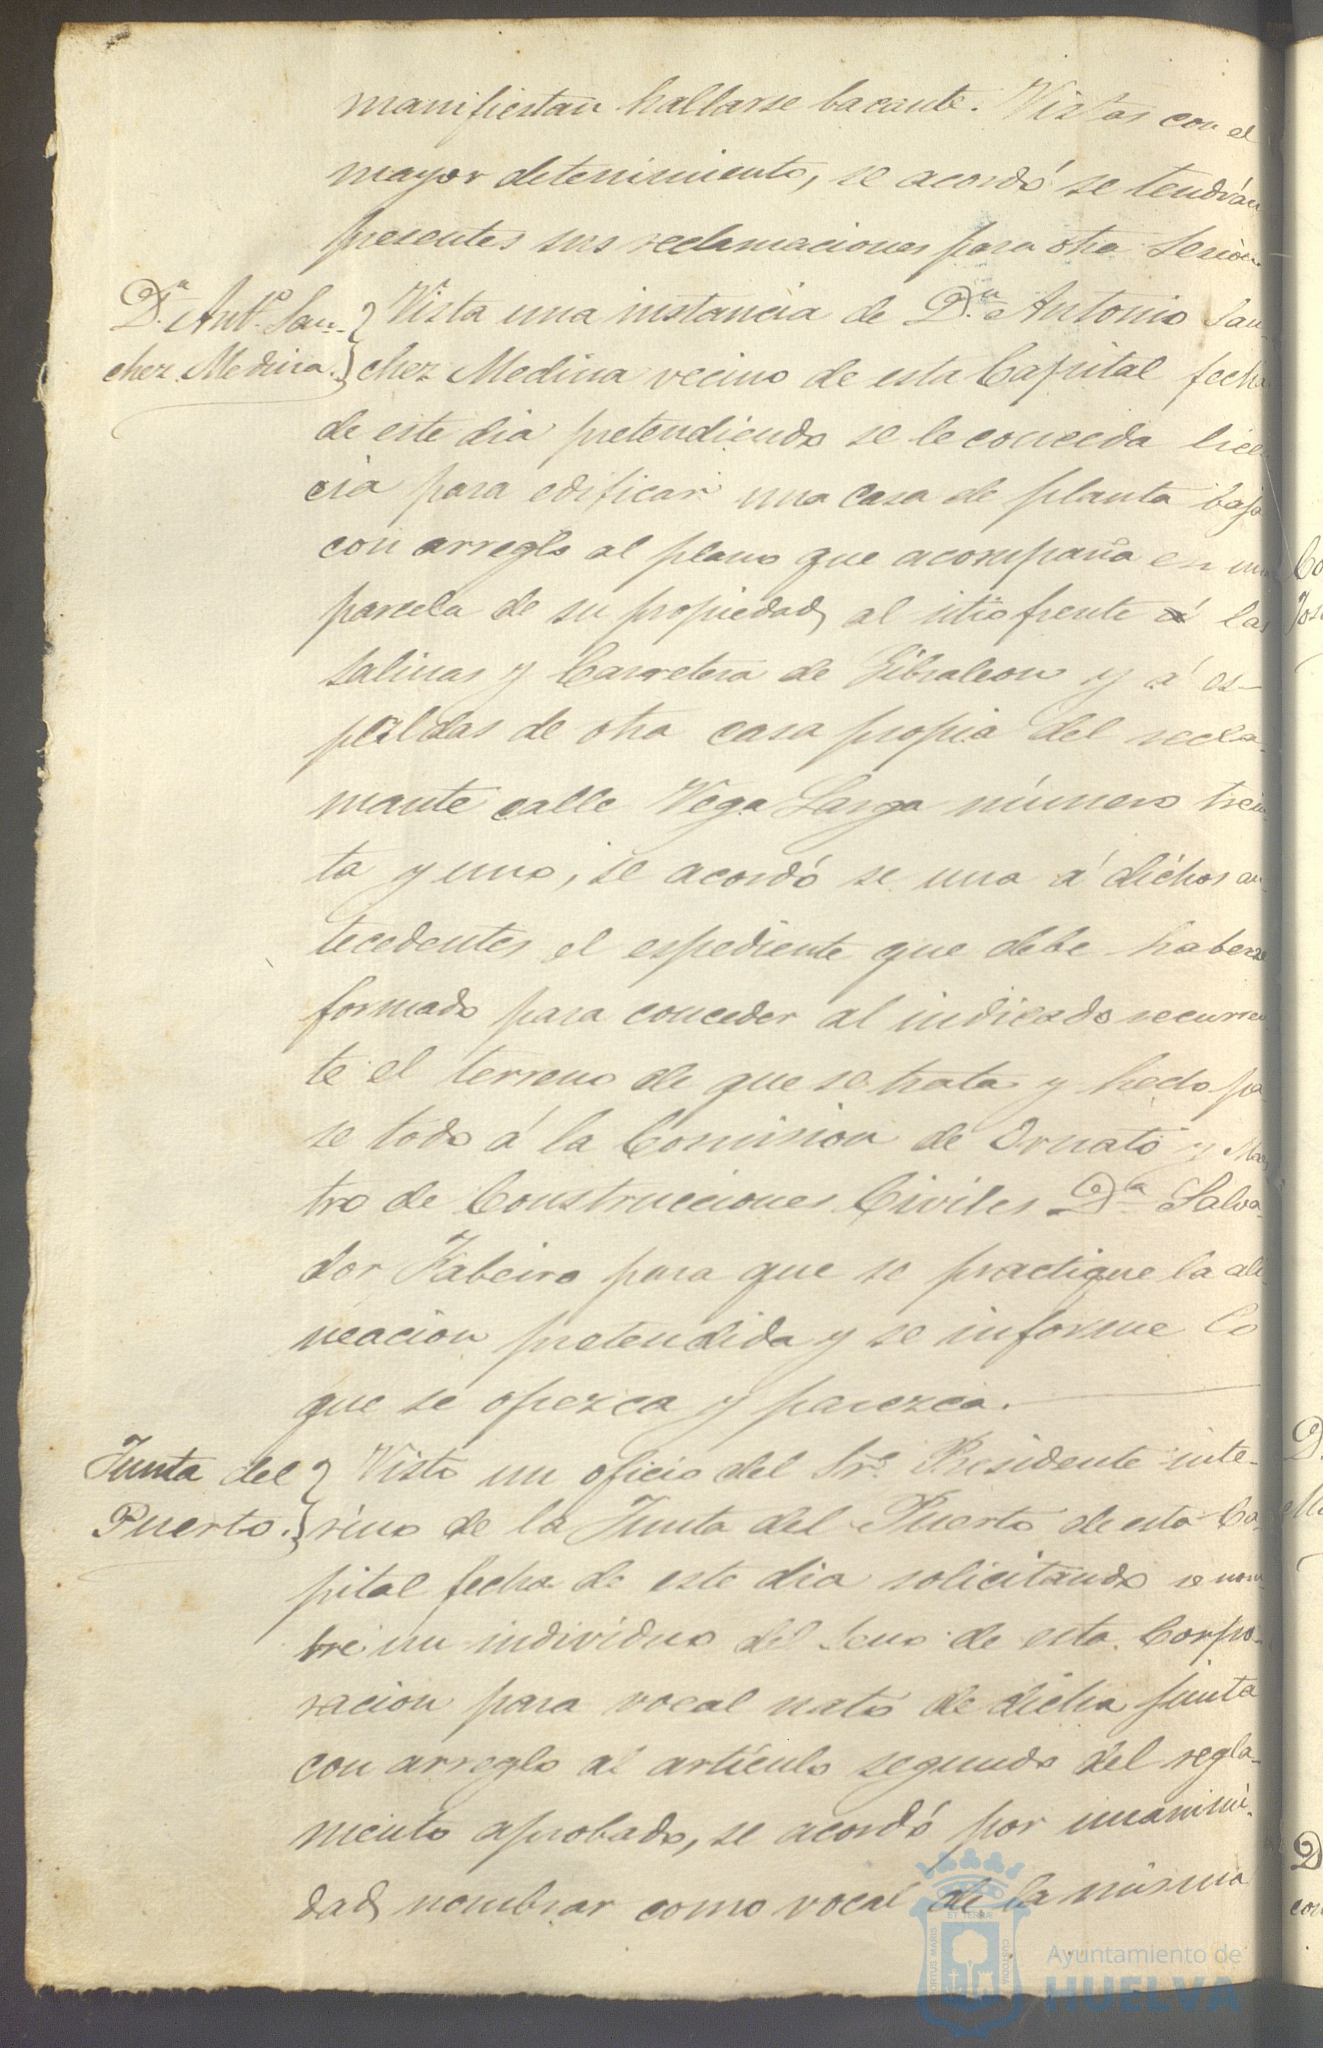 manifiestan hallarse bacante. Vistas con el
mayor detenimiento, se acordó se tendrán
presentes sus reclamaciones para otra Sesion.
D.n Ant.o San-
chez Medina.
Vista una instancia de D.n Antonio San-
chez Medina vecino de esta Capital fecha
de este dia pretendiendo se le conceda licen
cia para edificar una casa de planta baja
con arreglo al plano que acompaña en una
parcela de su propiedad, al sitio frente á las
salinas y Carretera de Gibraleon y á es-
paldas de otra casa propia del recla-
mante calle Vega Larga número trein
ta y uno, se acordó se una á dichos an
tecedentes el espediente que debe haberse
formado para conceder al indicado recurren
te el terreno de que se trata y hecho pa
se todo á la Comision de Ornato y Maes
tro de Construcciones Civiles D.n Salva-
dor Fabeiro para que se practique la ali
neacion pretendida y se informe lo
que se ofrezca y parezca.
Junta del
Puerto.
Visto un oficio del Sr. Presidente inte-
rino de la Junta del Puerto de esta Ca-
pital fecha de este dia solicitando se nom
bre un individuo del Seno de esta Corpo-
racion para vocal nato de dicha junta
con arreglo al artículo segundo del regla-
mento aprobado, se acordó por unanimi-
dad, nombrar como vocal de la misma
Ayuntamiento de
HUELVA